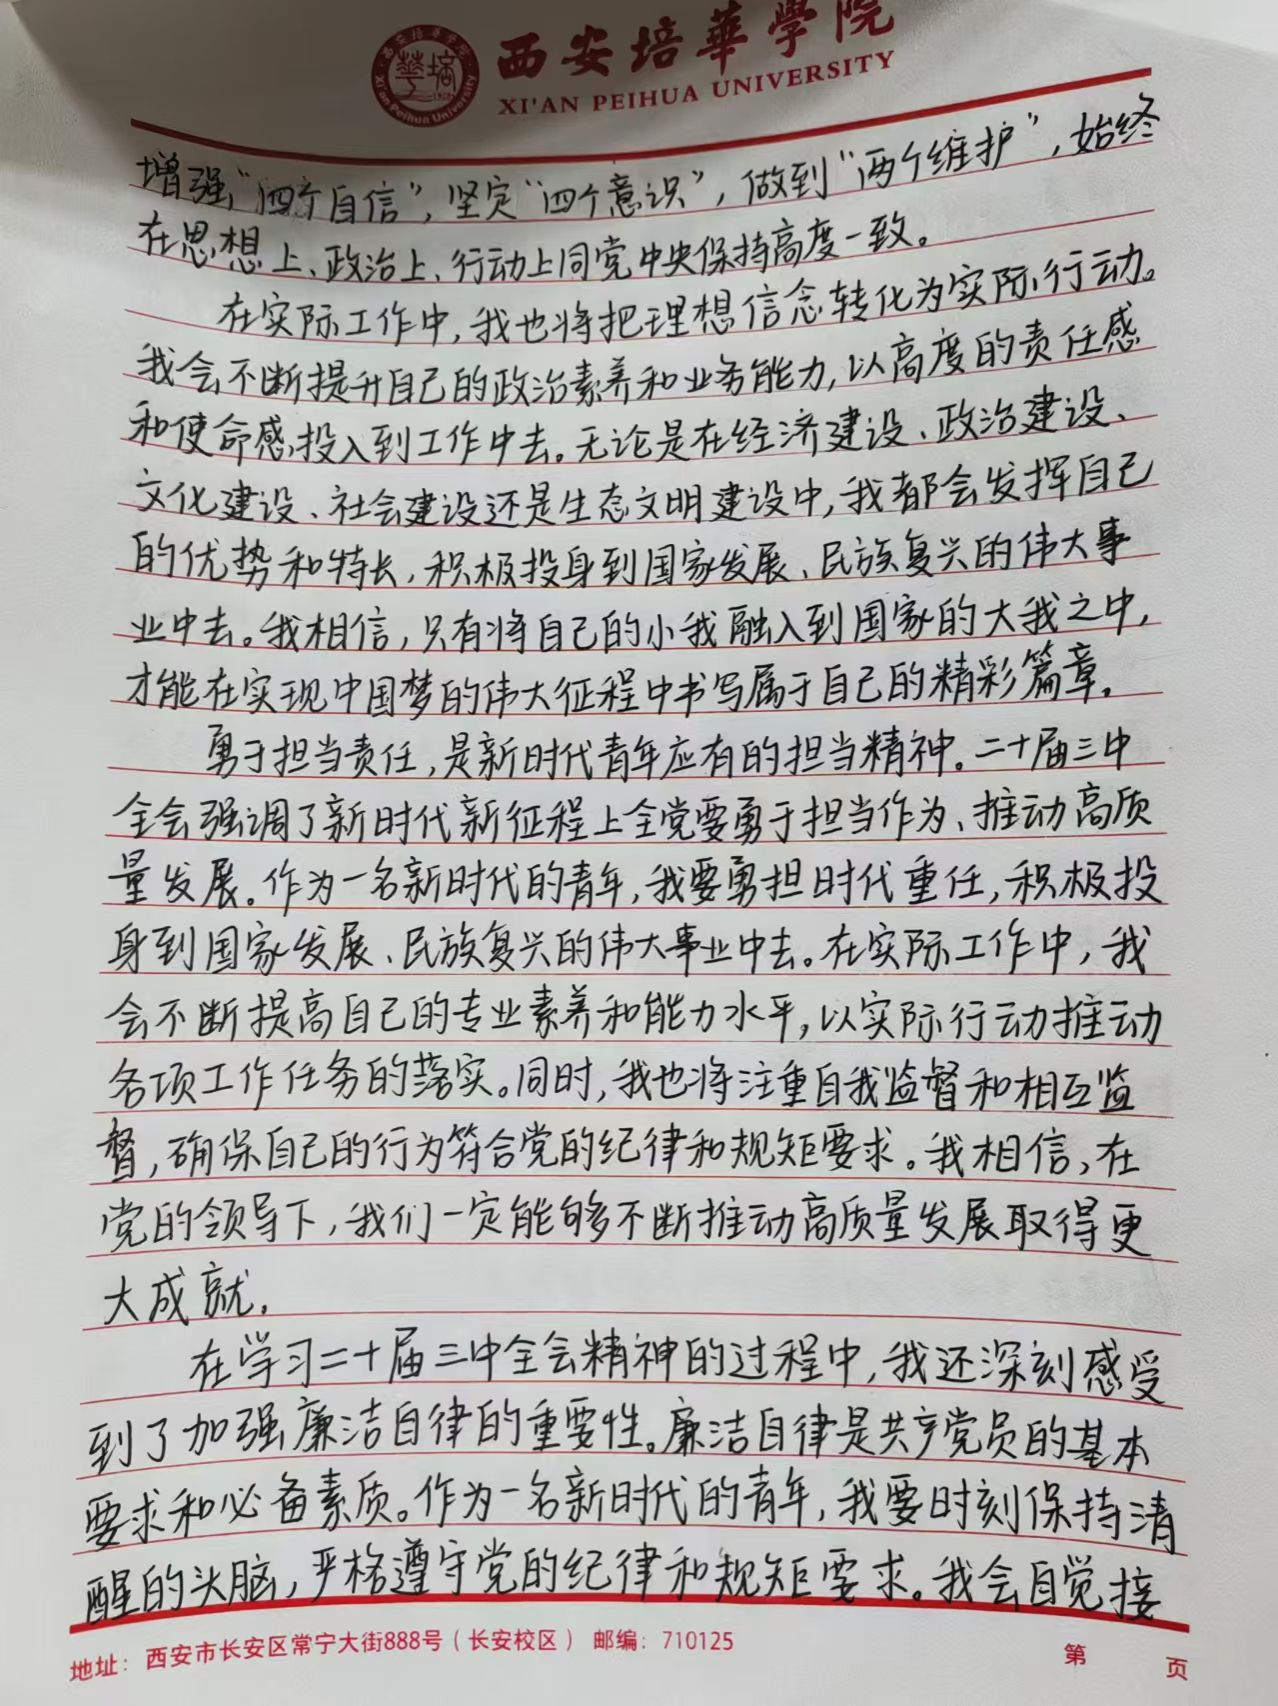 西安培華學院
XI'AN PEIHUA UNIVERSITY
增强“四个自信”，坚定“四个意识”，做到“两个维护”，始终
在思想上、政治上、行动上同党中央保持高度一致。
在实际工作中，我也将把理想信念转化为实际行动。
我会不断提升自己的政治素养和业务能力，以高度的责任感
和使命感投入到工作中去。无论是在经济建设、政治建设、
文化建设、社会建设还是生态文明建设中，我都会发挥自己
的优势和特长，积极投身到国家发展、民族复兴的伟大事
业中去。我相信，只有将自己的小我融入到国家的大我之中，
才能在实现中国梦的伟大征程中书写属于自己的精彩篇章。
勇于担当责任，是新时代青年应有的担当精神。二十届三中
全会强调了新时代新征程上全党要勇于担当作为、推动高质
量发展。作为一名新时代的青年，我要勇担时代重任，积极投
身到国家发展、民族复兴的伟大事业中去。在实际工作中，我
会不断提高自己的专业素养和能力水平，以实际行动推动
各项工作任务的落实。同时，我也将注重自我监督和相互监
督，确保自己的行为符合党的纪律和规矩要求。我相信，在
党的领导下，我们一定能够不断推动高质量发展取得更
大成就。
在学习二十届三中全会精神的过程中，我还深刻感受
到了加强廉洁自律的重要性。廉洁自律是共产党员的基本
要求和必备素质。作为一名新时代的青年，我要时刻保持清
醒的头脑，严格遵守党的纪律和规矩要求。我会自觉接
地址：西安市长安区常宁大街888号（长安校区） 邮编：710125
第 页